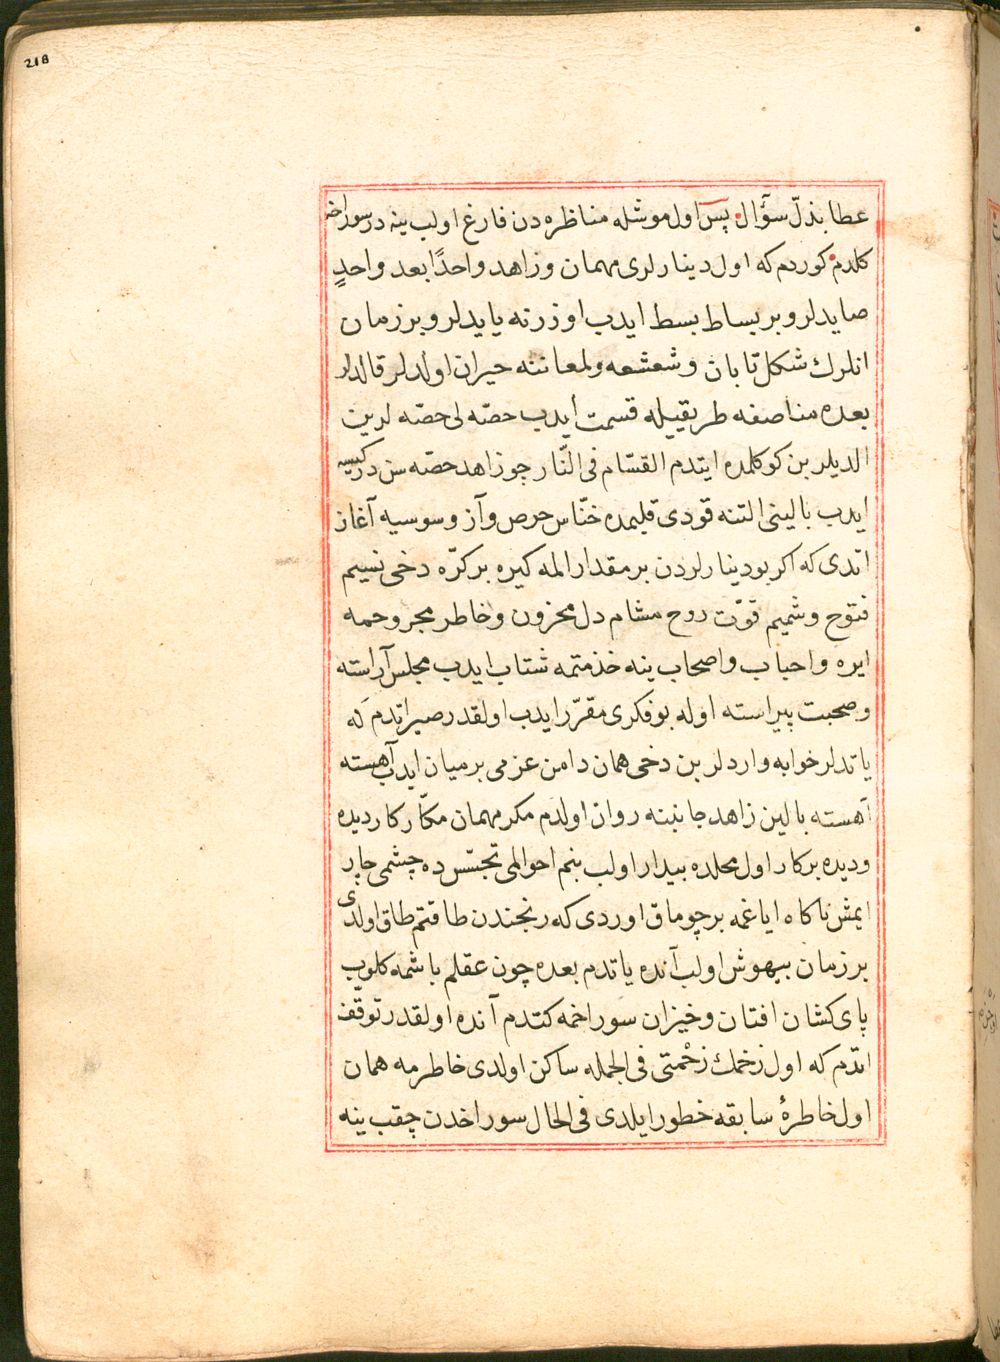 218
عطا بذلّ سؤآل پس اول موشله مناظره دن فارغ اولب ينه در سوراخه
كلدم كوردم كه اول دينارلرى مهمان وزاهد واحدًا بعد واحدٍ
صايدلر وبر بساط بسط ايدب اوزرنه يايدلر وبر زمان
انلرك شكل تابان وشعشعه ولمعاننه حيران اولدلر قالدلر
بعده مناصفه طريقيله قسمت ايدب حصّه لى حصّه لرين
الديلر بن كوكلمده ايتدم القسّام فى النّار چو زاهد حصّه سن در كيسه
ايدب بالينى التنه قودى قلبمده خنّاس حرص وآز وسوسيه آغاز
اتدى كه اكر بو دينارلردن بر مقدار المه كيره بر كرّه دخى نسيم
فتوح وشميم قوّت روح مشام دل محزون وخاطر مجروحمه
ايره واحباب واصحاب ينه خذمتمه شتاب ايدب مجلس آراسته
وصحبت پيراسته اوله بو فكرى مقرّر ايدب اولقدر صبر اتدم كه
ياتدلر خوابه واردلر بن دخى همان دامن عزمى بر ميان ايدب آهسته
آهسته بالين زاهد جانبنه روان اولدم مكر مهمان مكّار كارديده
وديده بركار اول محلده بيدار اولب بنم احوالمى تجسّس ده چشمى چار
ايمش ناكاه اياغمه بر چوماق اوردى كه رنجندن طاقتم طاق اولدى
بر زمان بيهوش اولب آنده ياتدم بعده چون عقلم باشمه كلوب
پاى كشان افتان وخيزان سوراخمه كتدم آنده اولقدر توقّف
اتدّم كه اول زخمك زحْمتى فى الجمله ساكن اولدى خاطرمه همان
اول خاطرهٔ سابقه خطور ايلدى فى الحال سوراخدن چقب ينه